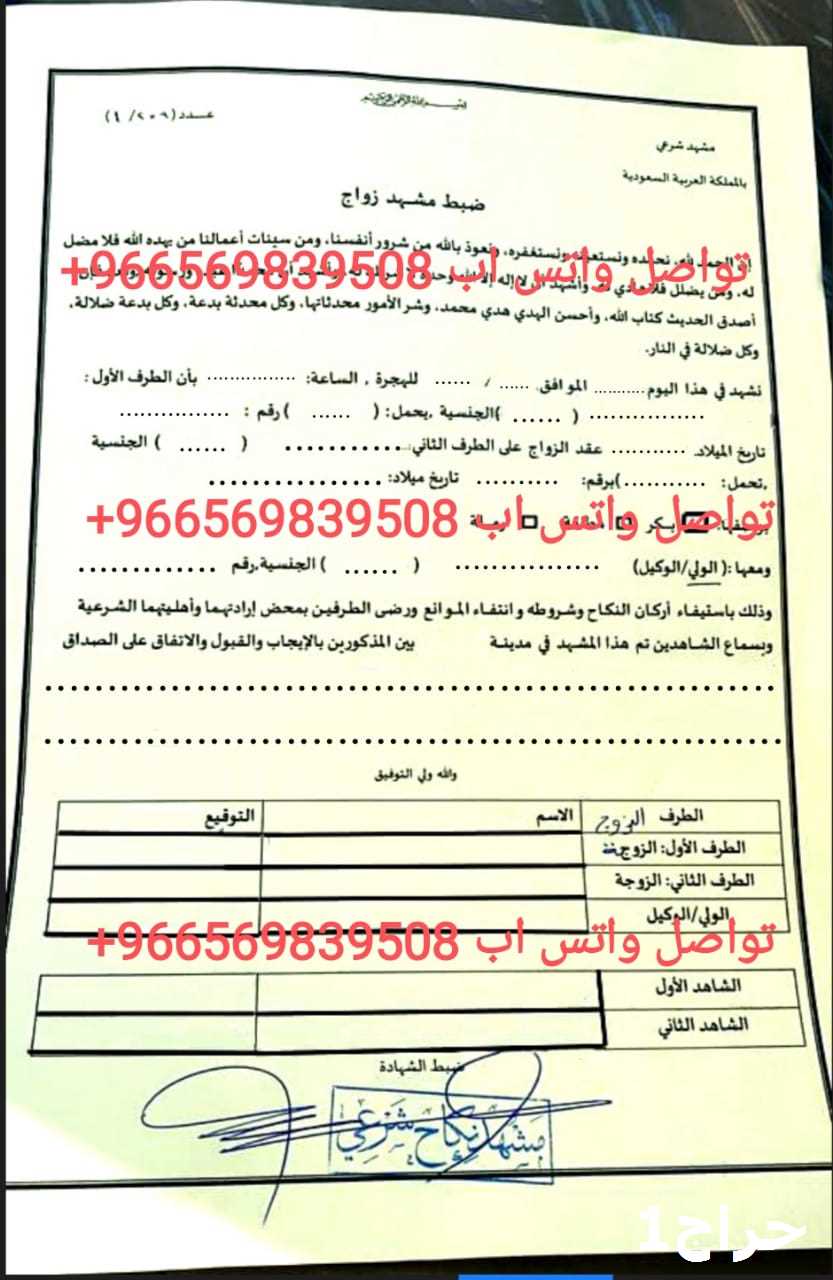 بسم الله الرحمن الرحيم
عدد (٢٠٦/ ٤)
مشهد شرعي
بالمملكة العربية السعودية
ضبط مشهد زواج
إن الحمد لله، نحمده ونستعينه ونستغفره، ونعوذ بالله من شرور أنفسنا، ومن سيئات أعمالنا من يهده الله فلا مضل
تواصل واتس اب 966569839508+
له، ومن يضلل فلا هادي له، وأشهد أن لا إله إلا الله وحده لا شريك له، وأشهد أن
أصدق الحديث كتاب الله، وأحسن الهدي هدي محمد، وشر الأمور محدثاتها، وكل محدثة بدعة، وكل بدعة ضلالة،
وكل ضلالة في النار.
نشهد في هذا اليوم .......... الموافق ...... / ...... للهجرة , الساعة: ............... بأن الطرف الأول:
................ ( ...... )الجنسية ,يحمل: ( ...... )رقم : ................
تاريخ الميلاد. ........... عقد الزواج على الطرف الثاني: ............ ( ...... ) الجنسية
,تحمل: ...........)برقم: ........... تاريخ ميلاد: ....................
تواصل واتس اب 966569839508+
بكر
ومعها :( الولي/الوكيل) .................. ( ...... ) الجنسية,رقم ..............
وذلك باستيفاء أركان النكاح وشروطه و انتفاء الموانع ورضى الطرفين بمحض إرادتهما وأهليتهما الشرعية
وبسماع الشاهدين تم هذا المشهد في مدينة بين المذكورين بالإيجاب والقبول والاتفاق على الصداق
والله ولي التوفيق
الطرف الزوج الاسم التوقيع
الطرف الأول: الزوج
الطرف الثاني: الزوجة
الولي/الوكيل
تواصل واتس اب 966569839508+
الشاهد الأول
الشاهد الثاني
ضبط الشهادة
مشهد نكاح شرعي
حراج1